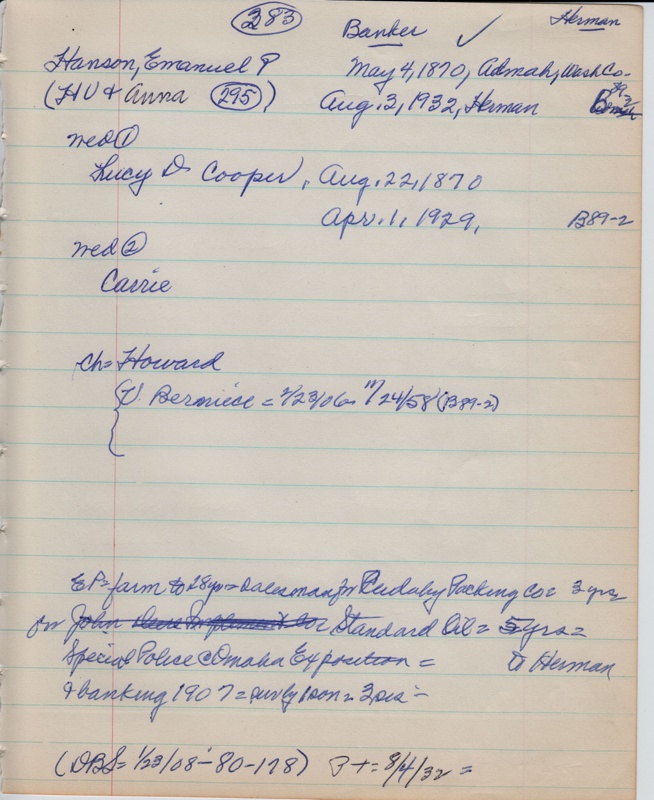 283 Banker ✓ Herman
Hanson, Emanuel P May 4, 1870, Admah, Wash Co-
(HV & Anna 295) Aug. 3, 1932, Herman B 89-2
med ①
Lucy D Cooper, Aug. 22, 1870
Apr. 1, 1929, B89-2
med ②
Carrie
Ch= Howard
V. Berniece = 2/23/06- 11/24/58 (B89-2)
EP= farm to 28yr= salesman for Cudahy Packing Co= 3 yrs
for John Deere Implement Co= Standard Oil= 5yrs=
Special Police @ Omaha Exposition = to Herman
& banking 1907 = only son =
(DBS= 1/23/08 - 80-178) = 8/4/32 =